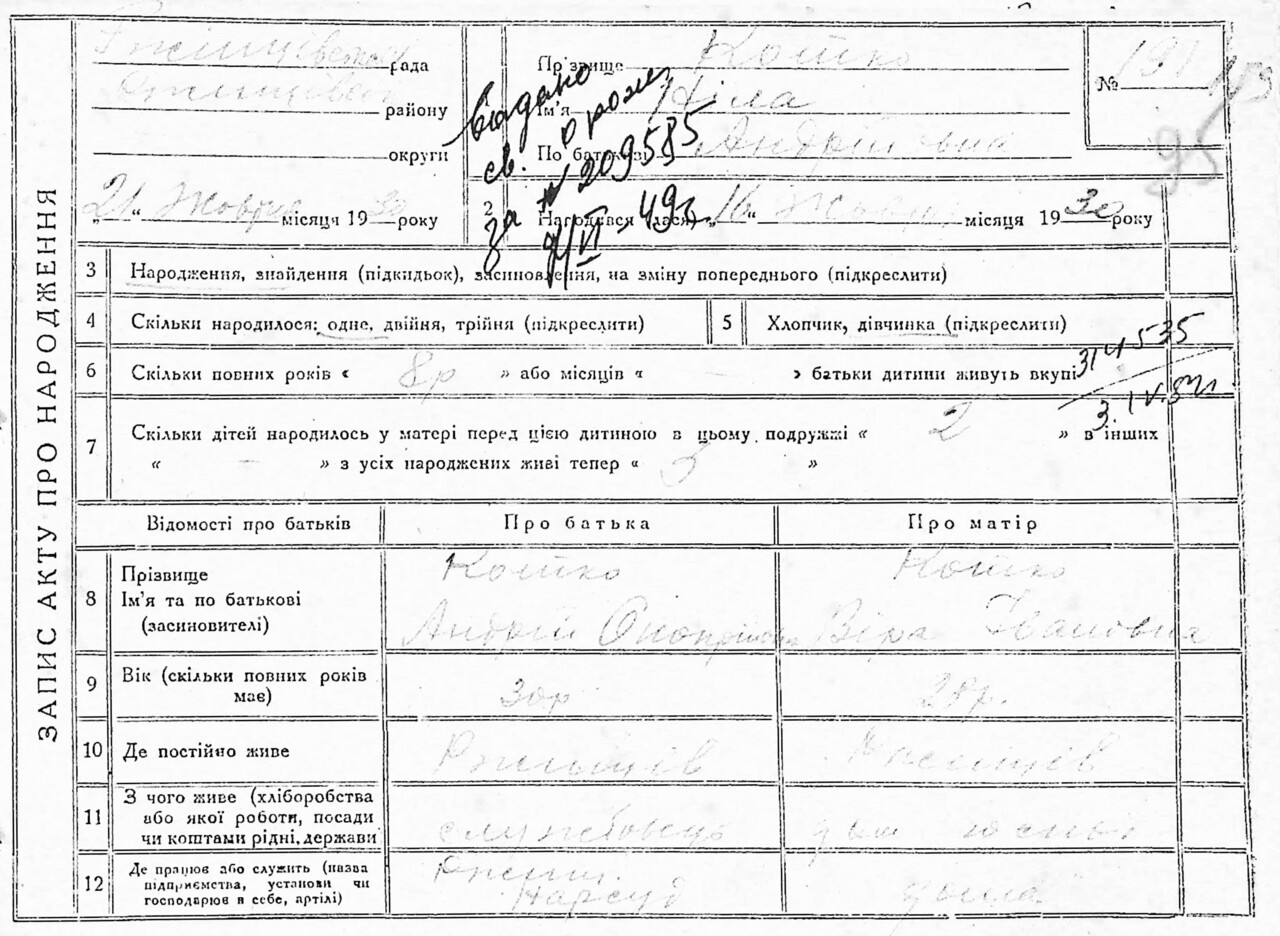 ЗАПИС АКТУ ПРО НАРОДЖЕННЯ
рада
району
округи
„21“ Жовтня місяця 1930 року
Прізвище Кошко
Ім'я Ніла
По батькові Андріївна
№ 191
95
2 Народився (лася) „16“ Жовтня місяця 1930 року
Видано
св. о рожд
за № 209585
VI 49г
3 Народження, знайдення (підкидьок), засиновлення, на зміну попереднього (підкреслити)
4 Скільки народилося: одне, двійня, трійня (підкреслити)
5 Хлопчик, дівчинка (підкреслити)
6 Скільки повних років « 8р » або місяців « – » батьки дитини живуть вкупі
314535
3.IV.
7 Скільки дітей народилось у матері перед цією дитиною в цьому подружжі « 2 » в інших
« – » з усіх народжених живі тепер « 3 »
Відомості про батьків Про батька Про матір
8 Прізвище Кошко Кошко
Ім'я та по батькові Андрій Віра Івановна
(засиновителі)
9 Вік (скільки повних років 30р 28р.
має)
10 Де постійно живе Ржищів Ржищів
11 З чого живе (хліборобства
або якої роботи, посади
чи коштами рідні, держави службовець
12 Де працює або служить (назва Ржищ.
підприємства, установи чи Нарсуд дома
господарює в себе, артілі)